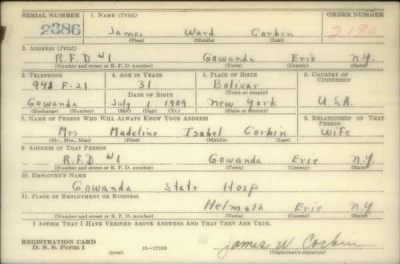 SERIAL NUMBER 1. NAME (Print) ORDER NUMBER
2386 James Ward Corbin 2190
(First) (Middle) (Last)
2. ADDRESS (Print)
R.F.D #1 Gowanda Erie N.Y.
(Number and street or R. F. D. number) (Town) (County) (State)
3. TELEPHONE 4. AGE IN YEARS 5. PLACE OF BIRTH 6. COUNTRY OF CITIZENSHIP
942 F-21 31 Bolivar
DATE OF BIRTH (Town or county)
Gowanda July 1 1909 New York U.S.A.
(Exchange) (Number) (Mo.) (Day) (Yr.) (State or country)
7. NAME OF PERSON WHO WILL ALWAYS KNOW YOUR ADDRESS 8. RELATIONSHIP OF THAT PERSON
Mrs Madeline Isabel Corbin Wife
(Mr., Mrs., Miss) (First) (Middle) (Last)
9. ADDRESS OF THAT PERSON
R.F.D #1 Gowanda Erie N.Y.
(Number and street or R. F. D. number) (Town) (County) (State)
10. EMPLOYER'S NAME
Gowanda State Hosp
11. PLACE OF EMPLOYMENT OR BUSINESS
Helmuth Erie N.Y.
(Number and street or R. F. D. number) (Town) (County) (State)
I AFFIRM THAT I HAVE VERIFIED ABOVE ANSWERS AND THAT THEY ARE TRUE.
REGISTRATION CARD
D. S. S. Form 1 (over) 16—17105 James W. Corbin
(Registrant's signature)